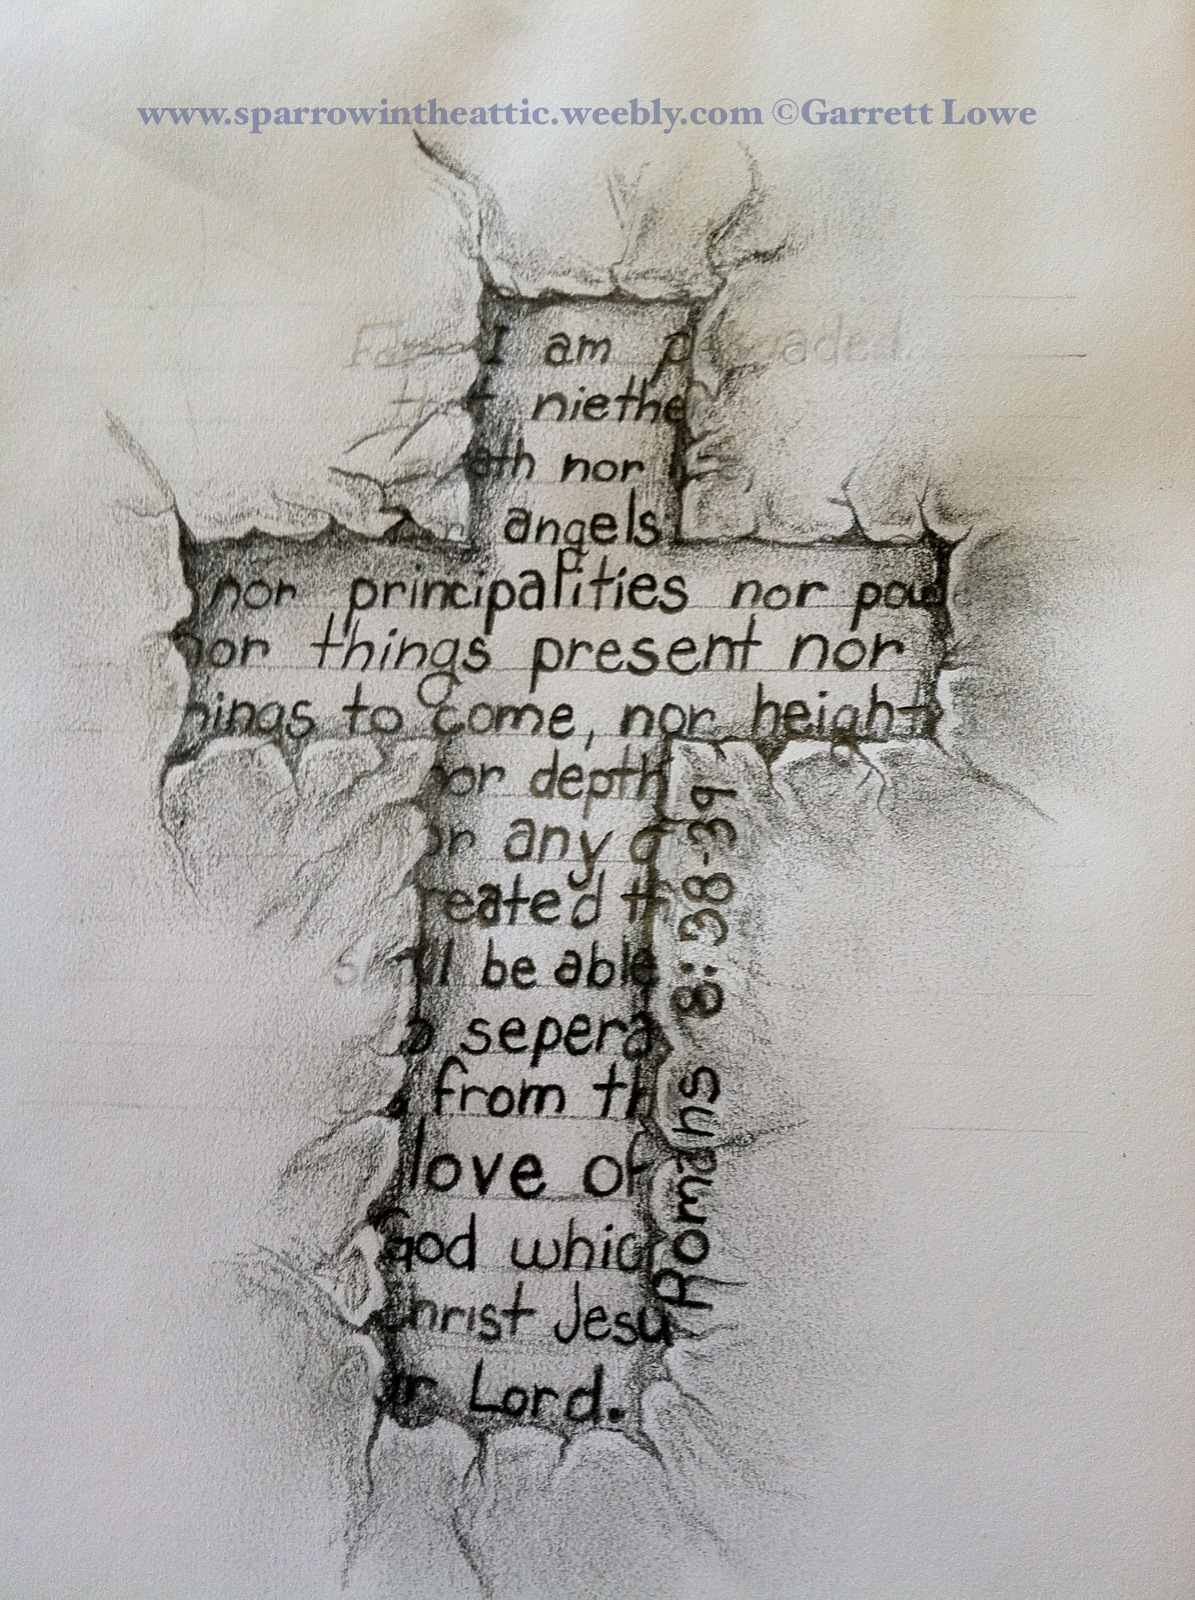 www.sparrowintheattic.weebly.com ©Garrett Lowe
For I am p uaded
that niethe
ath nor
nor angels
nor principalities nor pow
nor things present nor
hings to come, nor height
nor depth
nor any o
reated th
shall be able
o sepera
from th
love of
God whic
Christ Jesu
ur Lord.
Romans 8:38-39